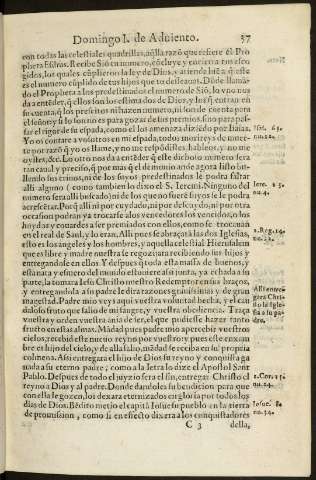 Domingo I. de Aduiento. 37
con todas las celestiales quadrillas, aq̃lla razõ que refiere el Pro
pheta Esdras. Recibe Siõ tu numero, cõcluye y encierra tus esco
gidos, los quales cũplieron la ley de Dios, y atiende hiza q̃ este
es el numero cũplido de tus hijos que tu desseauas. Dõde llamã
do el Propheta a los predestinados el numero de Siõ, lo vno nos
da a entẽder, q̃ ellos son los estimados de Dios, y los q̃ entran en
su cuenta, q̃ los presci nos no hazen numero, ni son de cuenta para
el señor; y si lo fuerẽ no es para gozar de sus premios, sino para pas
sar el rigor de su espada, como el los amenaza diziẽdo por Isaias.
Yo os contare a vosotros en mi espada, todos morireys de muer
te por razõ q̃ yo os llame, y no me respõdistes, hableos, y no me
oystes, &c. Lo otro nos da a entẽder q̃ este dichoso numero sera
tan caual y preciso, q̃ por mas q̃ el demonio ande agora listo sun
llendo las animas, ni de los suyos predestinados le podra faltar
alli alguno ( como tambien lo dixo el S. Ieremi. Ninguno del
numero sera alli buscado) ni de los que no fuerẽ suyos se le podra
acrescẽtar. Porq̃ alli ni por cuydado, ni por descuydo, ni por otra
occasion podran ya trocarse a los vencedores los vencidos, o los
huydos y couardes a ser premiados con ellos, como se trocauan
en el real de Saul, y lo eran. Alli pues se abraçarã las dos Iglesias,
esto es los angeles y los hombres, y aquella celestial Hierusalem
que es libre y madre nuestra se regozijara recibiendo sus hijos y
entregandose en ellos. Y despues q̃ toda esta massa de buenos, y
esta nata y esmero del mundo estuuiere assi junta, ya echada a su
parte, la tomara Iesu Christo nuestro Redemptor en sus braços,
y entregandola a su padre le dira razones grauissimas y de gran
magestad. Padre mio veys aqui vuestra voluntad hecha, y el cau
daloso fruto que salio de mi sangre, y vuestra obediencia. Traça
vuestra y orden vuestra era de ser, el que pudiesse hazer tanto
fructo en estas almas. Mãdad pues padre mio apercebir vuestros
cielos, recebid este nueuo reyno por vuestro; y pues este enxam
bre es hijo del cielo, y de alla salio, mãdad se reciba en su propria
colmena. Assi entregara el hijo de Dios su reyno y conquista ga
nada a su eterno padre; como a la letra lo dize el Apostol Sant
Pablo. Despues de todo el juyzio sera el fin, entregara Christo el
reyno a Dios y al padre. Donde dandoles su bendicion para que
con ella le gozen, los dexara eternizados en gloria por todos los
dias de Dios. Bẽdito metio el capitã Iosue su pueblo en la tierra
de promission, como si en efecto dixera a los conquistadores
C 3 della,
Isai. 65.
nu. 12.
Iere. 23.
nu. 4.
1. Reg. 14.
nu. 22.
Assi entre
gara Chris
to la Igle
sia a su pa-
dre.
1. Cor. 15.
nu. 24.
Iosue. 8.
nu. 24.